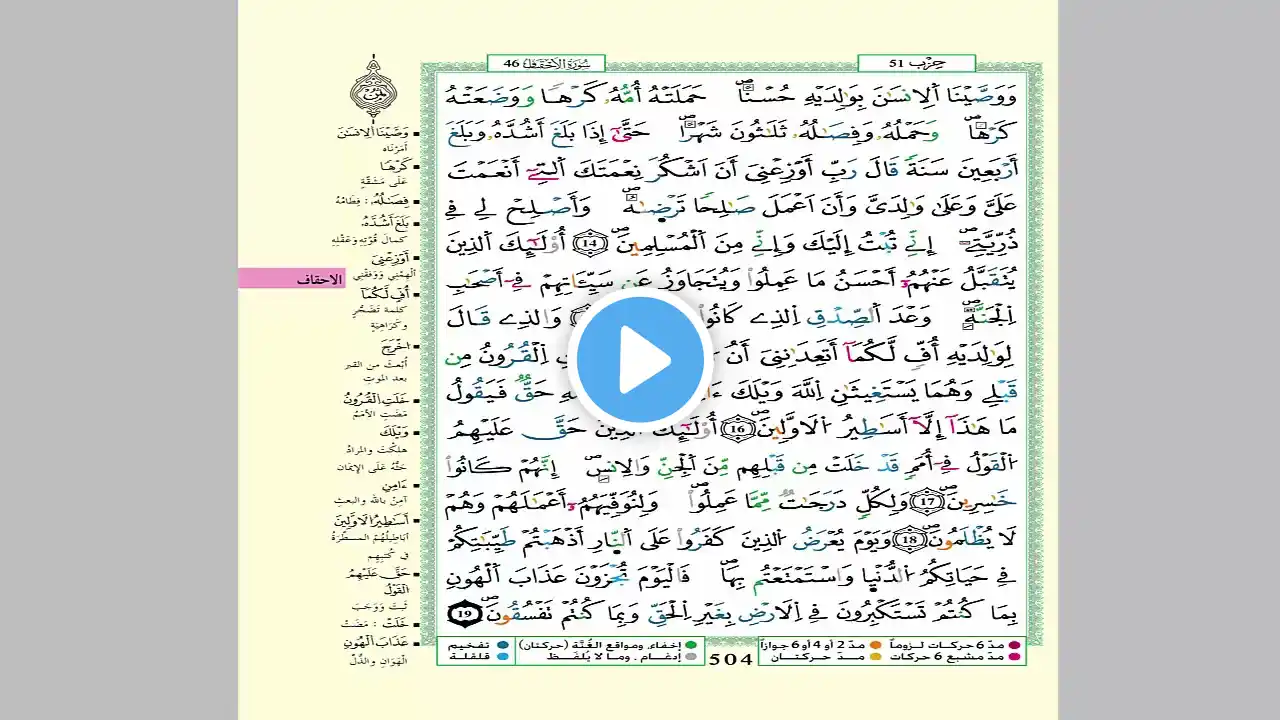 سورة الأحقاف 46
حزب 51
وَوَصَّيْنَا اَ۬لِانسَٰنَ بِوَٰلِدَيْهِ حُسْناًۖ حَمَلَتْهُ أُمُّهُۥ كَرْهاٗ وَوَضَعَتْهُ
كَرْهاٗۖ وَحَمْلُهُۥ وَفِصَٰلُهُۥ ثَلَٰثُونَ شَهْراًۖ حَتَّىٰٓ إِذَا بَلَغَ أَشُدَّهُۥ وَبَلَغَ
أَرْبَعِينَ سَنَةٗ قَالَ رَبِّ أَوْزِعْنِىٓ أَنَ اَشْكُرَ نِعْمَتَكَ اَ۬لتِےٓ أَنْعَمْتَ
عَلَيَّ وَعَلَىٰ وَٰلِدَيَّ وَأَنَ اَعْمَلَ صَٰلِحاٗ تَرْضَىٰهُۖ وَأَصْلِحْ لِے فِے
ذُرِّيَّتِےَۖ إِنِّے تُبْتُ إِلَيْكَ وَإِنِّے مِنَ اَ۬لْمُسْلِمِينَۖ 14 أُوْلَٰٓئِكَ اَ۬لذِينَ
يُتَقَبَّلُ عَنْهُمُۥٓ أَحْسَنُ مَا عَمِلُواْ وَيُتَجَاوَزُ عَن سَيِّـَٔاتِهِمْ فِےٓ أَصْحَٰبِ
اِ۬لْجَنَّةِۖ وَعْدَ اَ۬لصِّدْقِ اِ۬لذِے كَانُواْ وَالذِے قَالَ
لِوَٰلِدَيْهِ أُفّٖ لَّكُمَآ أَتَعِدَٰنِنِىٓ أَنُ اِ۬لْقُرُونُ مِن
قَبْلِے وَهُمَا يَسْتَغِيثَٰنِ اِ۬للَّهَ وَيْلَكَ حَقّٞ فَيَقُولُ
مَا هَٰذَآ إِلَّآ أَسَٰطِيرُ اُ۬لَاوَّلِينَۖ 16 أُوْلَٰٓئِكَ اَ۬لذِينَ حَقَّ عَلَيْهِمُ
اُ۬لْقَوْلُ فِےٓ أُمَمٖ قَدْ خَلَتْ مِن قَبْلِهِم مِّنَ اَ۬لْجِنِّ وَالِانسِۖ إِنَّهُمْ كَانُواْ
خَٰسِرِينَۖ 17 وَلِكُلّٖ دَرَجَٰتٞ مِّمَّا عَمِلُواْۖ وَلِنُوَفِّيَهُمُۥٓ أَعْمَٰلَهُمْ وَهُمْ
لَا يُظْلَمُونَۖ 18 وَيَوْمَ يُعْرَضُ اُ۬لذِينَ كَفَرُواْ عَلَى اَ۬لنَّارِ أَذْهَبْتُمْ طَيِّبَٰتِكُمْ
فِے حَيَاتِكُمُ اُ۬لدُّنْيَا وَاسْتَمْتَعْتُم بِهَاۖ فَالْيَوْمَ تُجْزَوْنَ عَذَابَ اَ۬لْهُونِ
بِمَا كُنتُمْ تَسْتَكْبِرُونَ فِے اِ۬لَارْضِ بِغَيْرِ اِ۬لْحَقِّ وَبِمَا كُنتُمْ تَفْسُقُونَۖ 19
وَصَّيْنَا الِانسَٰنَ
أمرناه
كَرْهاٗ
على مشقّة
فِصَٰلُهُۥ : فطامه
بَلَغَ أَشُدَّهُۥ
كمال قوّته وعقله
أَوْزِعْنِىٓ
ألهمني ووفّقني
أُفّٖ لَّكُمَآ
كلمة تضجّر
وكراهية
أُخْرَجَ
أُبعث من القبر
بعد الموت
خَلَتِ الْقُرُونُ
مضت الأمم
وَيْلَكَ
هلكت والمراد
حثّه على الإيمان
ءَامِنِ
آمن بالله والبعث
أَسَٰطِيرُ الَاوَّلِينَ
أباطيلهم المسطّرة
في كتبهم
حَقَّ عَلَيْهِمُ
الْقَوْلُ
ثبت ووجب
خَلَتْ : مضت
عَذَابَ الْهُونِ
الهوان والذّلّ
الاحقاف
مدّ 6 حركات لزوماً
مدّ 2 أو 4 أو 6 جوازاً
مدّ مشبع 6 حركات
مدّ حركتان
504
إخفاء، ومواقع الغُنَّة (حركتان)
إدغام، وما لا يُلفَظ
تفخيم
قلقلة